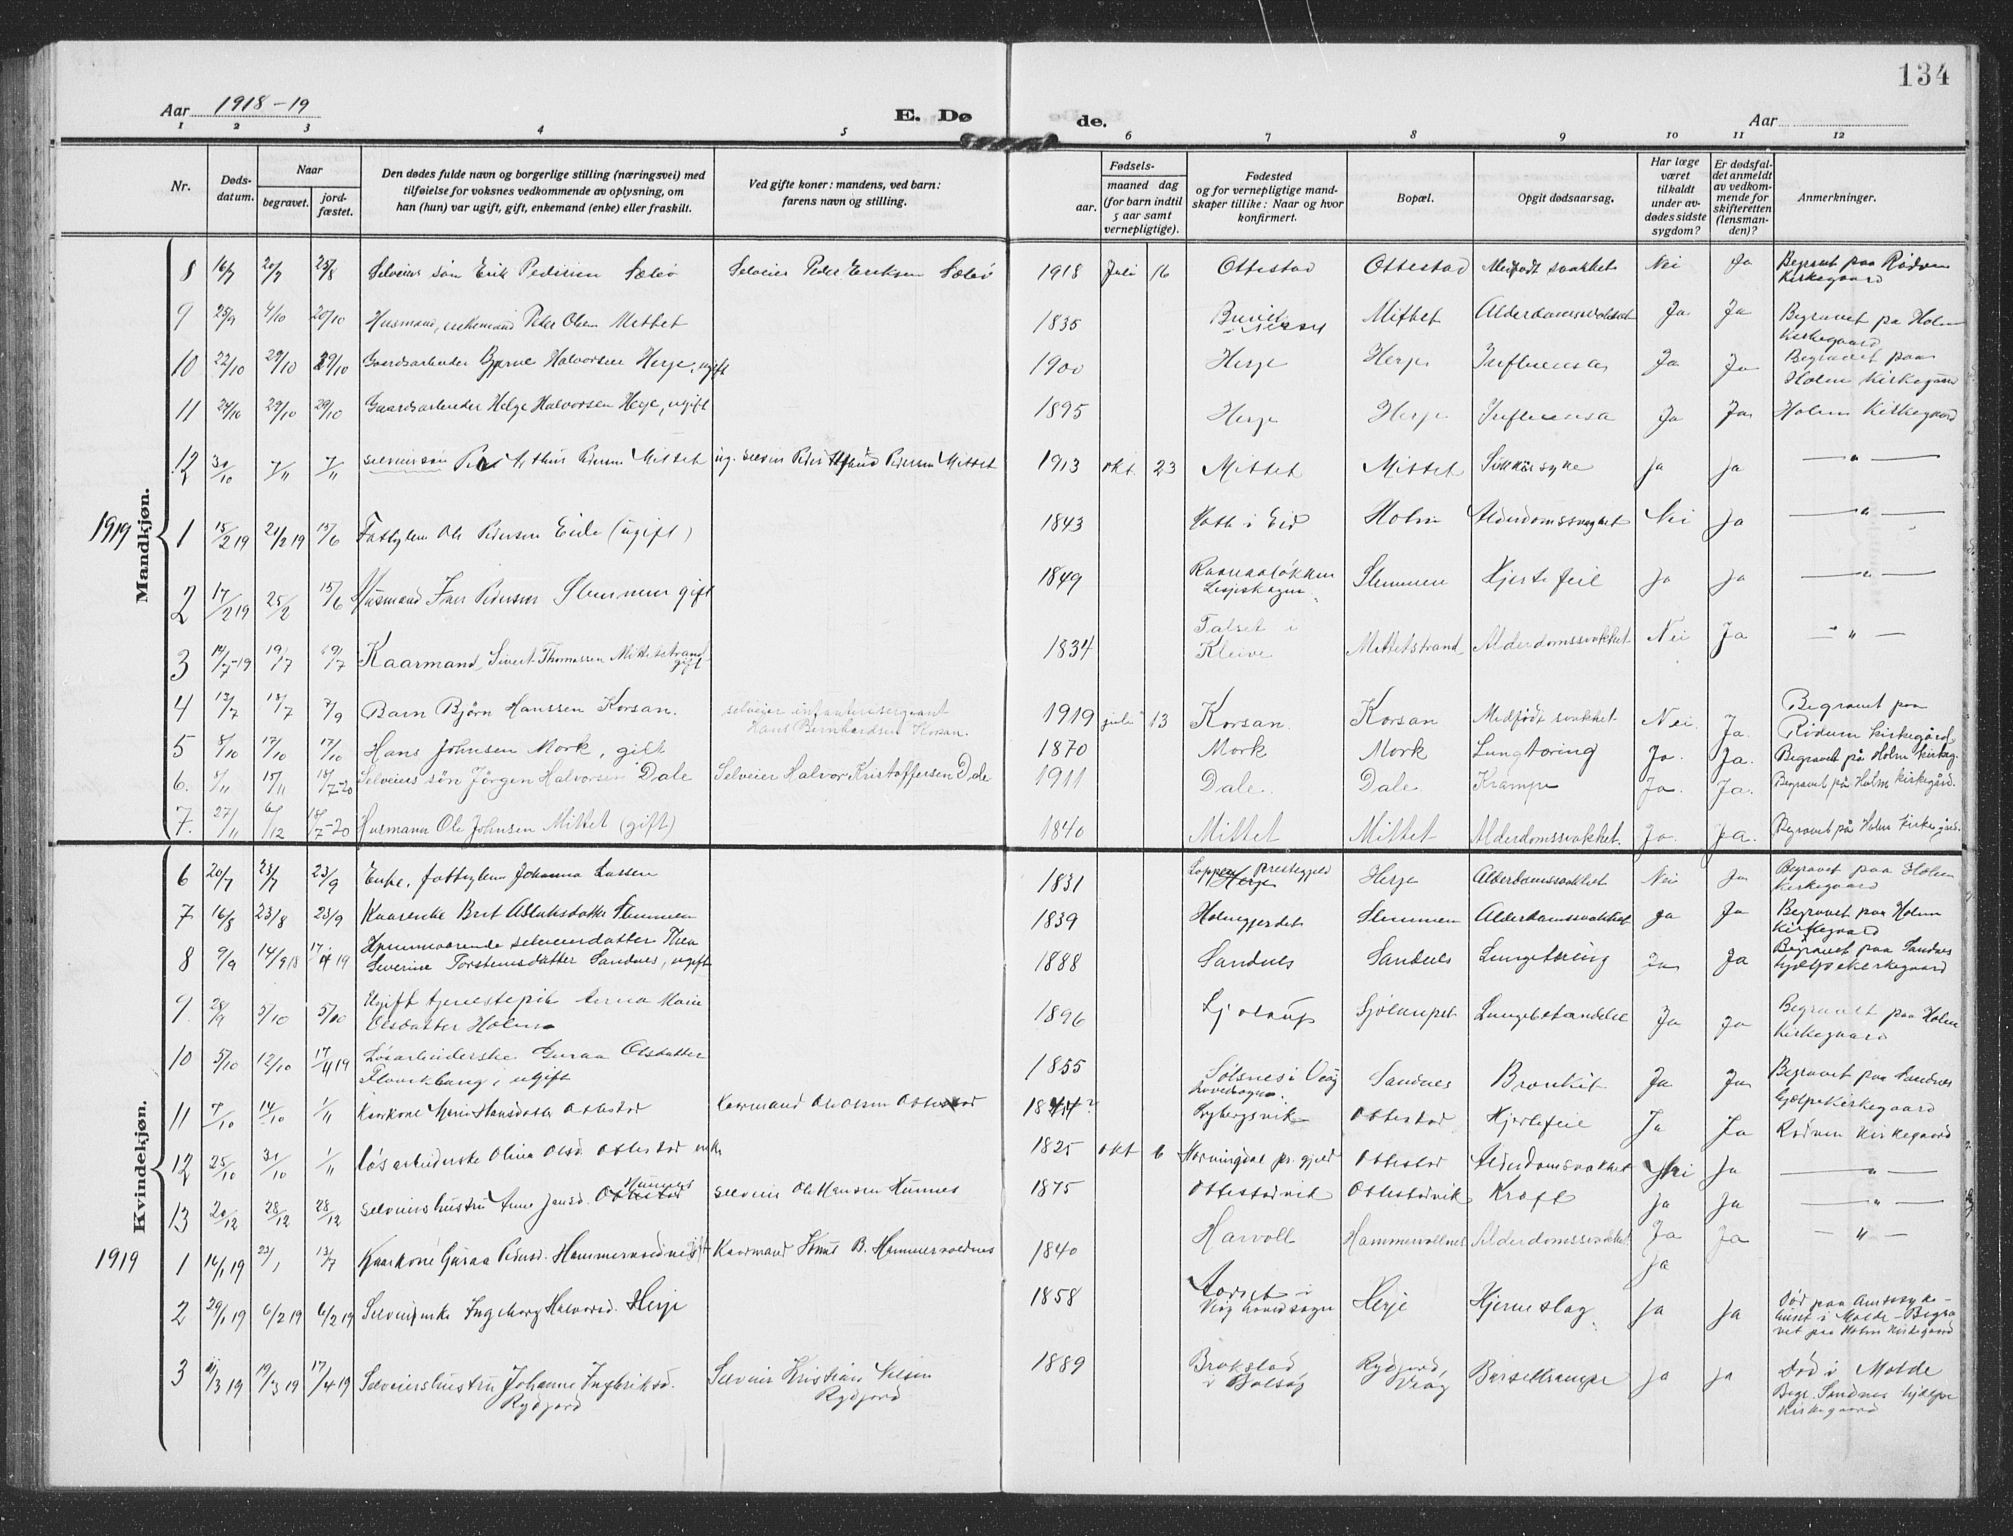 134
Aar 1918-19
E. Døde.
Aar
1 2 3 4 5 6 7 8 9 10 11 12
Nr.
Døds-
datum.
Naar
begravet.
jord-
fæstet.
Den dødes fulde navn og borgerlige stilling (næringsvei) med
tilføielse for voksnes vedkommende av oplysning, om
han (hun) var ugift, gift, enkemand (enke) eller fraskilt.
Ved gifte koner: mandens, ved barn:
farens navn og stilling.
Fødsels-
aar.
maaned dag
(for barn indtil
5 aar samt
vernepligtige).
Fødested
og for vernepligtige mand-
skaper tillike: Naar og hvor
konfirmert.
Bopæl.
Opgit dødsaarsag.
Har læge
været
tilkaldt
under av-
dødes sidste
sygdom?
Er dødsfal-
det anmeldt
av vedkom-
mende for
skifteretten
(lensman-
den)?
Anmerkninger.
Mandkjøn.
8 16/7 20/7 25/8 Selveiers søn Erik Pedersen Sæbø Selveier Peder Eriksen Sæbø 1918 Juli 16 Ottestad Ottestad Medfødt svakhet Nei Ja Begravet paa Rødven
Kirkegaard
9 25/9 4/10 20/10 Husmand, enkemand Peder Olsen Mittet 1835 Mittet Alderdomssvakhet Ja Ja Begravet pa Holm
Kirkegaard
10 22/10 29/10 29/10 Gaardsarbeider Bjarne Halvorsen Herje, ugift 1900 Herje Herje Influensa Ja Ja Begravet paa
Holm Kirkegaard
11 24/10 29/10 29/10 Gaardsarbeider Helge Halvorsen Herje, ugift 1895 Herje Herje Influensa Ja Ja Holm Kirkegaard
12 30/10 7/11 7/11 selveiersøn Arthur Pedersen Mittet 1913 okt. 23 Mittet Mittet Sukkersyke Ja Ja — " —
1919
1 15/2 19 21/2 19 13/6 Fattiglem Ole Pedersen Eide (ugift) 1843 Holm Alderdomssvaghet Nei Ja — " —
2 17/2 19 25/2 15/6 Husmand Iver Pedersen Slemmen gift 1849 Slemmen Hjertefeil Ja Ja — " —
3 14/7-19 19/7 19/7 Kaarmand, Sivert Thomassen Mittetstrand
gift 1834 Talset i
Kleive Mittetstrand Alderdomssvakhet Nei Ja — " —
4 13/7 18/7 7/9 Barn Bjørn Hanssen Korsan. selveier infanterisergeant
Hans Bernhardsen Korsan. 1919 juli 13 Korsan. Korsan Medfødt svakhet Nei. Ja. Begravet pa
Rødven Kirkegård.
5 8/10 17/10 17/10 Hans Johnsen Mork, gift 1870 Mork Mork Lungtæring Ja. Ja. Begravet på Holm kirkeg.
6. 5/11 15/11 18/7-20 Selveiers søn Jørgen Halvorsen Dale Selveier Halvor Kristoffersen Dale 1911 Dale. Dale Krampe Ja. Ja. Begravet på Holm kirkegård.
7. 27/11 6/12 18/7-20 Husmann Ole Johnsen Mittet (gift) 1840 Mittet Mittet Alderdomssvakhet. Ja. Ja. Begravet på Holm kirkegård.
Kvindekjøn.
6 20/7 23/7 23/9 Enke, fattiglem Johanna Larsen 1831 Loppen prestegjeld
Herje Herje Alderdomssvakhet Nei Ja Begravet paa Holm
Kirkegaard
7 16/8 23/8 23/9 Kaarenke Brit Aslaksdatter Slemmen 1839 Holmgjerdet Slemmen Alderdomssvakhet Ja Ja Begravet paa Holm
Kirkegaard
8 9/9 14/9 18 17/4 19 Hjemmeværende selveierdatter Thea
Severine Torstensdatter Sandnes, ugift 1888 Sandnes Sandnes Lungetæring Ja Ja Begravet paa Sandnes
hjælpekirkegaard
9. 28/9 5/10 5/10 Ugift tjenestepike Anna Marie
Olsdatter Holm 1896 Lungebetændelse Ja Ja Begravet paa Holm
Kirkegaard
10 5/10 12/10 17/4 19 Løsarbeiderske Guraa Olsdatter
ugift 1855 Sølsnes i Veøy
hovedsogn. Sandnes Bronkit Ja Ja Begravet paa Sandnes
hjælpekirkegaard
11 7/10 14/10 1/11 Kaarkone Hansdatter Ottestad Kaarmand Ole Olsen Ottestad 1844? Nybergsvik Ottestad Hjertefeil Ja Ja Rødven Kirkegaard
12 25/10 31/10 1/11 Løsarbeiderske Olina Olsd. Ottestad enke 1825 okt 6 Hornindal pr.gjeld Ottestad Alderdomssvakhet Nei Ja — " —
13 20/12 28/12 28/12 selveierhustru Anne Jensd. Ottestad Hunnes selveier Ole Hansen Hunnes 1875 Ottestadvik Ottestadvik Kræft Ja Ja — " —
1919
1 14/1 19 23/1 13/7 Kaarkone Guraa Pedersd. Hammervoldnes Kaarmand Knut B. Hammervoldnes 1840 Harvoll Hammervollnes Alderdomssvakhet Ja Ja — " —
Ja
2 29/1 19 6/2 19 6/2 19 Selveierenke Ingeborg Halvorsd. Herje 1858 Aarset i
Veøy hovedsogn Herje Hjerneslag Ja Ja Død paa Amtssyke-
huset i Molde - Begra
vet paa Holm Kirkegaard
3 11/3 19 19/3 19 17/4 19 Selveierhustru Johanne Ingebriktsd.
Rydjord Selveier Kristian Nilsen
Rydjord 1889 Brokstad
i Bolsøy Rydjord,
Veøy Barselkrampe Ja Ja Død i Molde
Begr. Sandnes hjælpe
Kirkegaard